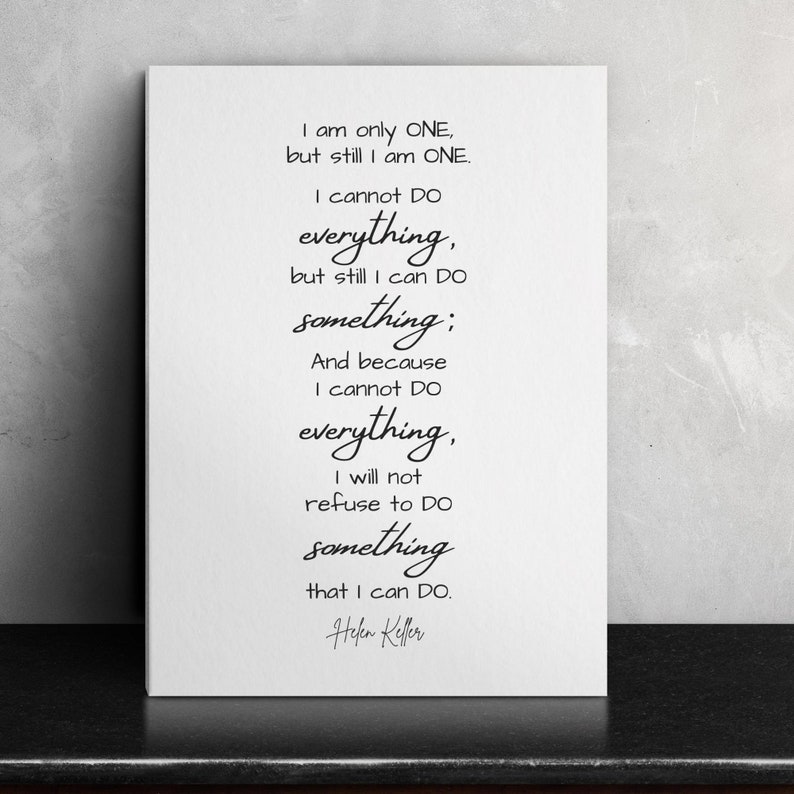 I am only ONE,
but still I am ONE.
I cannot DO
everything,
but still I can DO
something;
And because
I cannot DO
everything,
I will not
refuse to DO
something
that I can DO.
Helen Keller